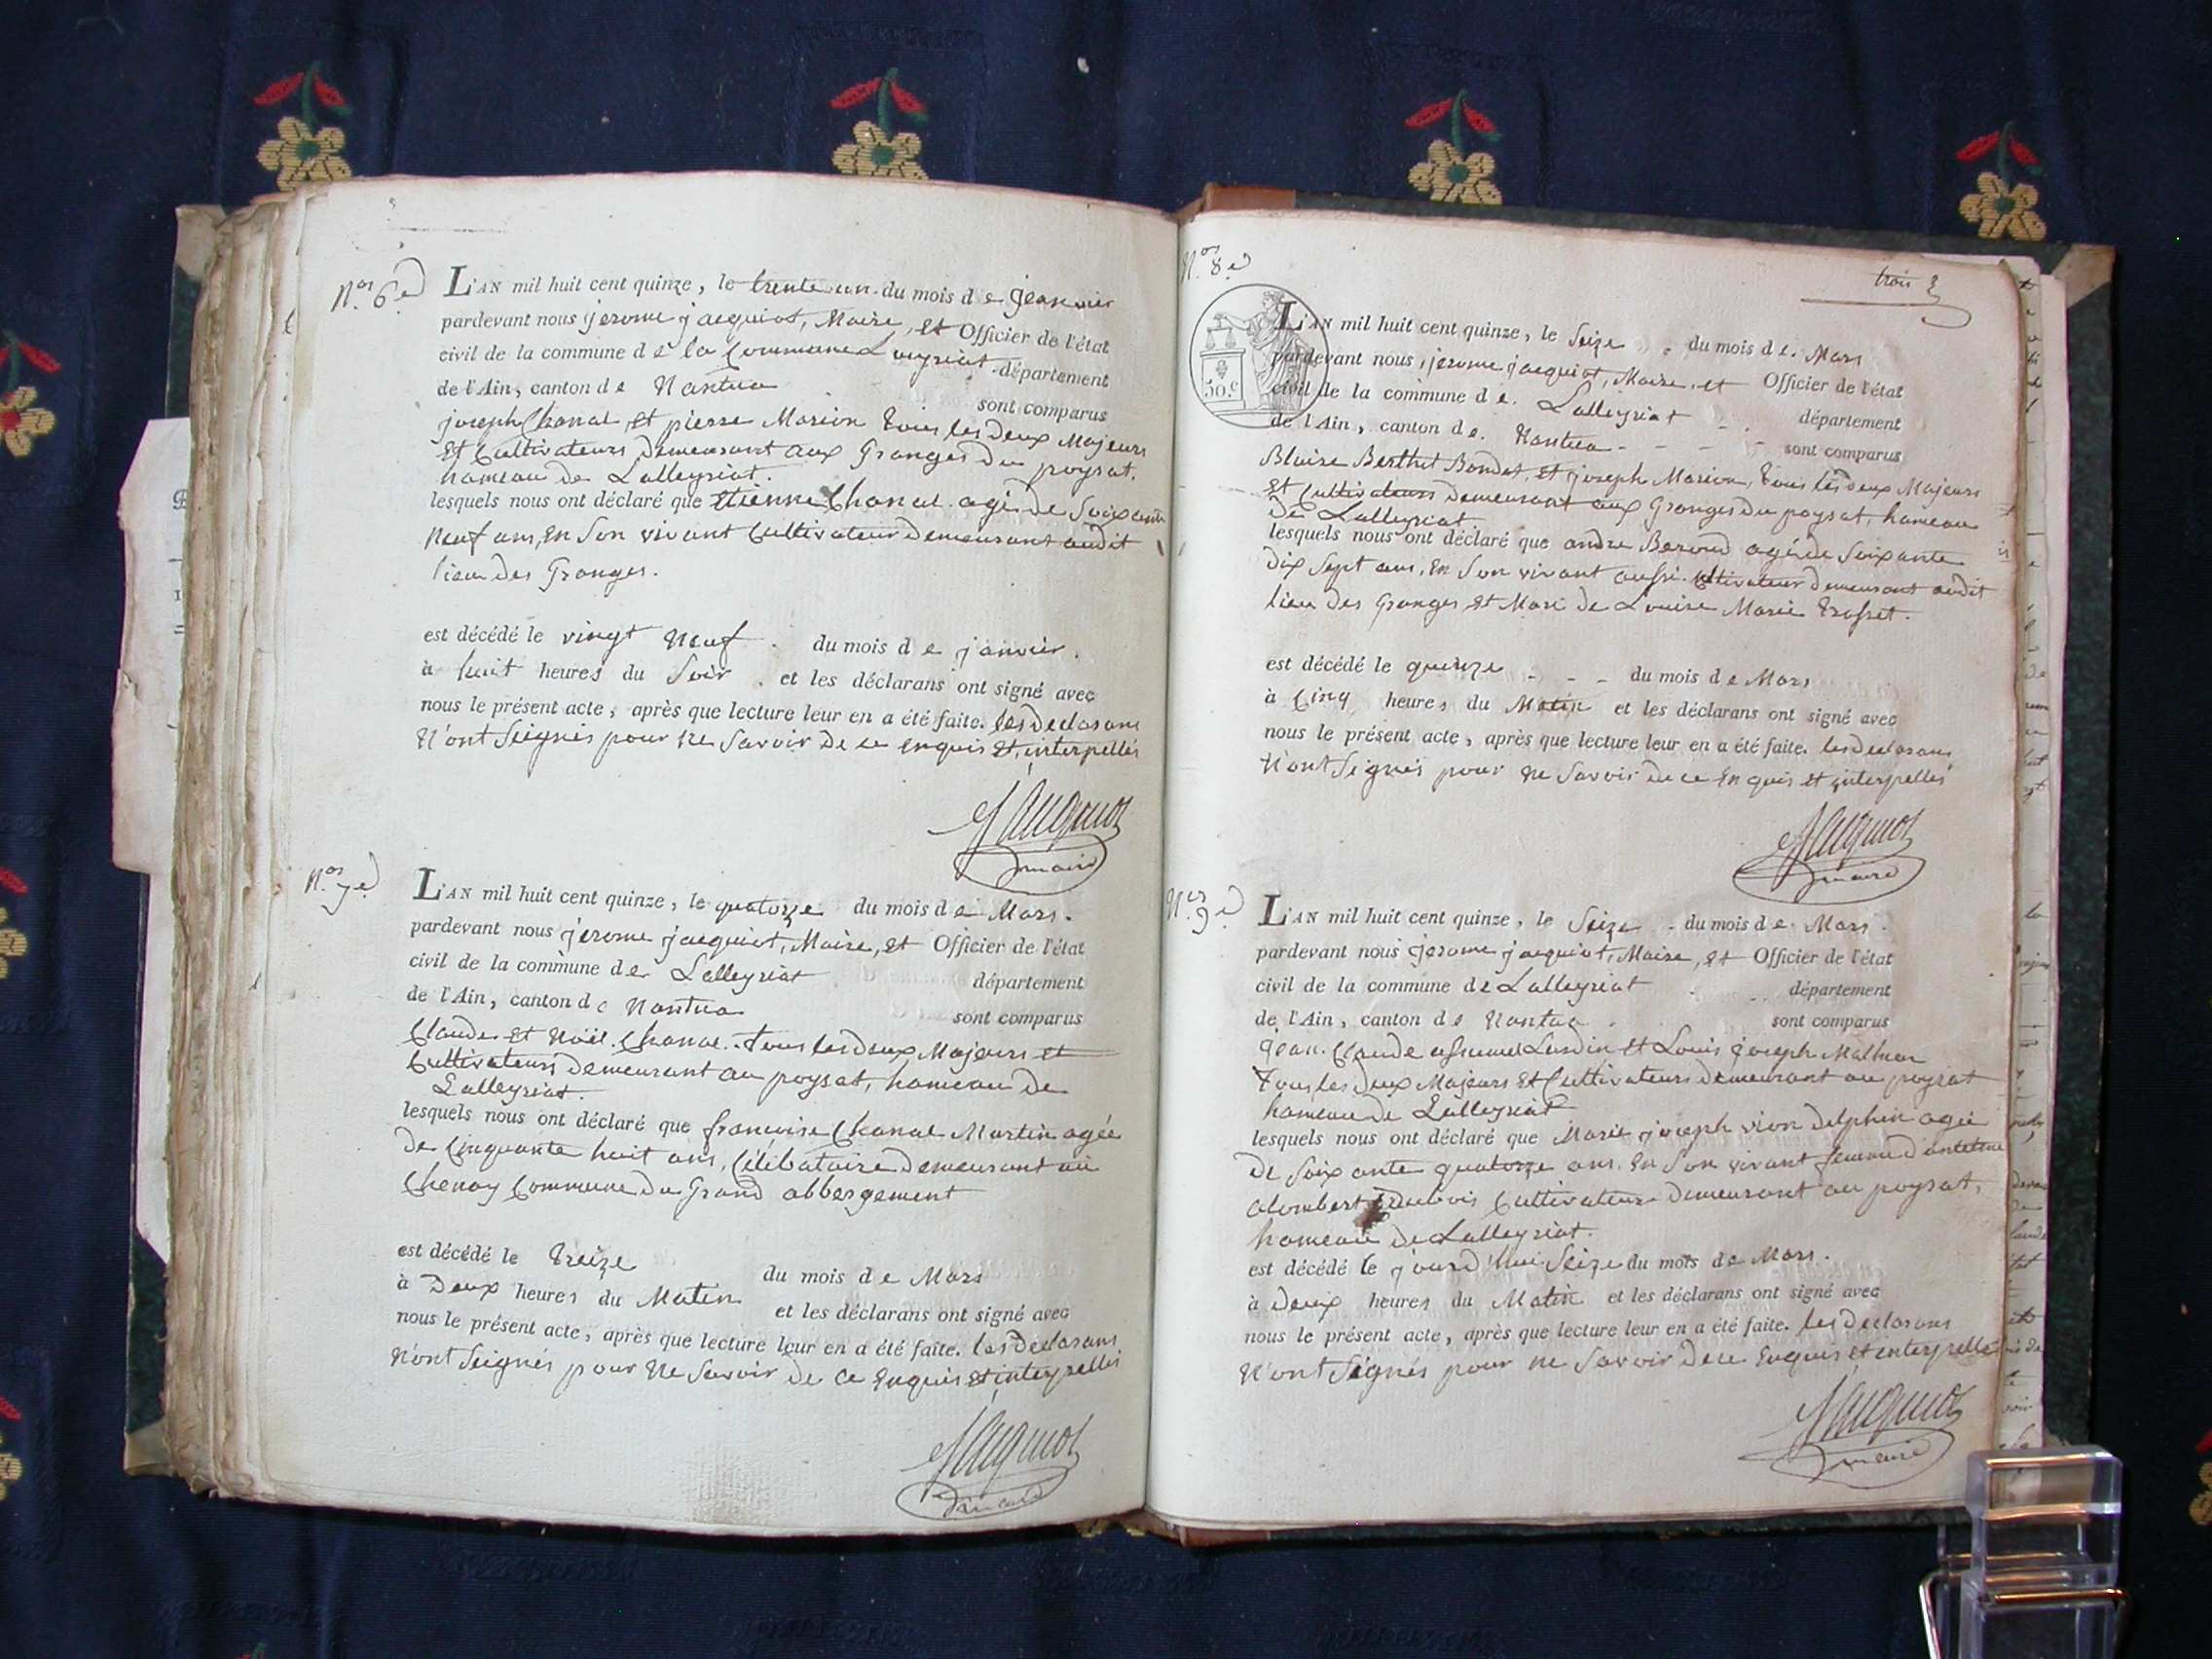 Nos 6e
L'AN mil huit cent quinze, le trente un du mois de jeanvier
pardevant nous jerome jacquiot, Maire, et Officier de l'état
civil de la commune de la Commune Laleyriat département
de l'Ain, canton de Nantua
sont comparus
joseph Chanal et pierre Marion tous les deux Majeurs
Et Cultivateurs demeurant aux Granges du poysat,
hameau de Lalleyriat.
lesquels nous ont déclaré que Etienne Chanal agé de Soixante
Neuf ans, En Son vivant Cultivateur demeurant audit
lieu des Granges.
est décédé le vingt Neuf du mois de janvier.
à huit heures du Soir et les déclarans ont signé avec
nous le présent acte, après que lecture leur en a été faite. les declarans
N'ont Seignés pour Ne Savoir de ce enquis Et interpellés
Jacquiot
maire
Nos 7e
L'AN mil huit cent quinze, le quatorze du mois de Mars.
pardevant nous jérome jacquiot, Maire, et Officier de l'état
civil de la commune de Lalleyriat département
de l'Ain, canton de Nantua
sont comparus
Claude Et Noël Chanal. tous les deux Majeurs et
Cultivateurs demeurant au poysat, hameau de
Lalleyriat.
lesquels nous ont déclaré que francoise Chanal Martin agée
de Cinquante huit ans, Célibataire demeurant au
Chenoy Commune du Grand abbergement
est décédé le treize du mois de Mars
à Deux heures du Matin et les déclarans ont signé avec
nous le présent acte, après que lecture leur en a été faite. les declarans
N'ont Seignés pour Ne Savoir de ce Enquis Et interpellés
Jacquiot
maire
Nos 8e
trois 3
50.c
L'AN mil huit cent quinze, le Seize du mois de Mars
pardevant nous, jerome jacquiot, Maire, et Officier de l'état
civil de la commune de Lalleyriat département
de l'Ain, canton de Nantua sont comparus
Blaise Berthet Bondet, et joseph Marion, tous les deux Majeurs
Et Cultivateurs demeurant aux Granges du poysat, hameau
de Lalleyriat
lesquels nous ont déclaré que andre Beroud agé de Soixante
dix Sept ans, En Son vivant aussi Cultivateur demeurant audit
lieu des Granges, Et Mari de Louise Marie trosset.
est décédé le quinze du mois de Mars
à Cinq heures du Matin et les déclarans ont signé avec
nous le présent acte, après que lecture leur en a été faite. les declarans
N'ont Seignés pour Ne Savoir de ce Enquis et interpellés
Jacquiot
maire
Nos 9e
L'AN mil huit cent quinze, le Seize du mois de Mars.
pardevant nous jerome jacquiot, Maire, et Officier de l'état
civil de la commune de Lalleyriat département
de l'Ain, canton de Nantua sont comparus
jean Claude Lardin Et Louis joseph
tous les deux Majeurs Et Cultivateurs demeurant au poysat
hameau de Lalleyriat
lesquels nous ont déclaré que Marie joseph vion delphin agée
de Soixante quatorze ans. En Son vivant femme d'antelme
alombert Cultivateur demeurant au poysat,
hameau de Lalleyriat.
est décédé le jourd'hui Seize du mois de Mars.
à deux heures du Matin et les déclarans ont signé avec
nous le présent acte, après que lecture leur en a été faite. les declarans
N'ont Seignés pour ne Savoir de ce Enquis et interpellés
Jacquiot
maire